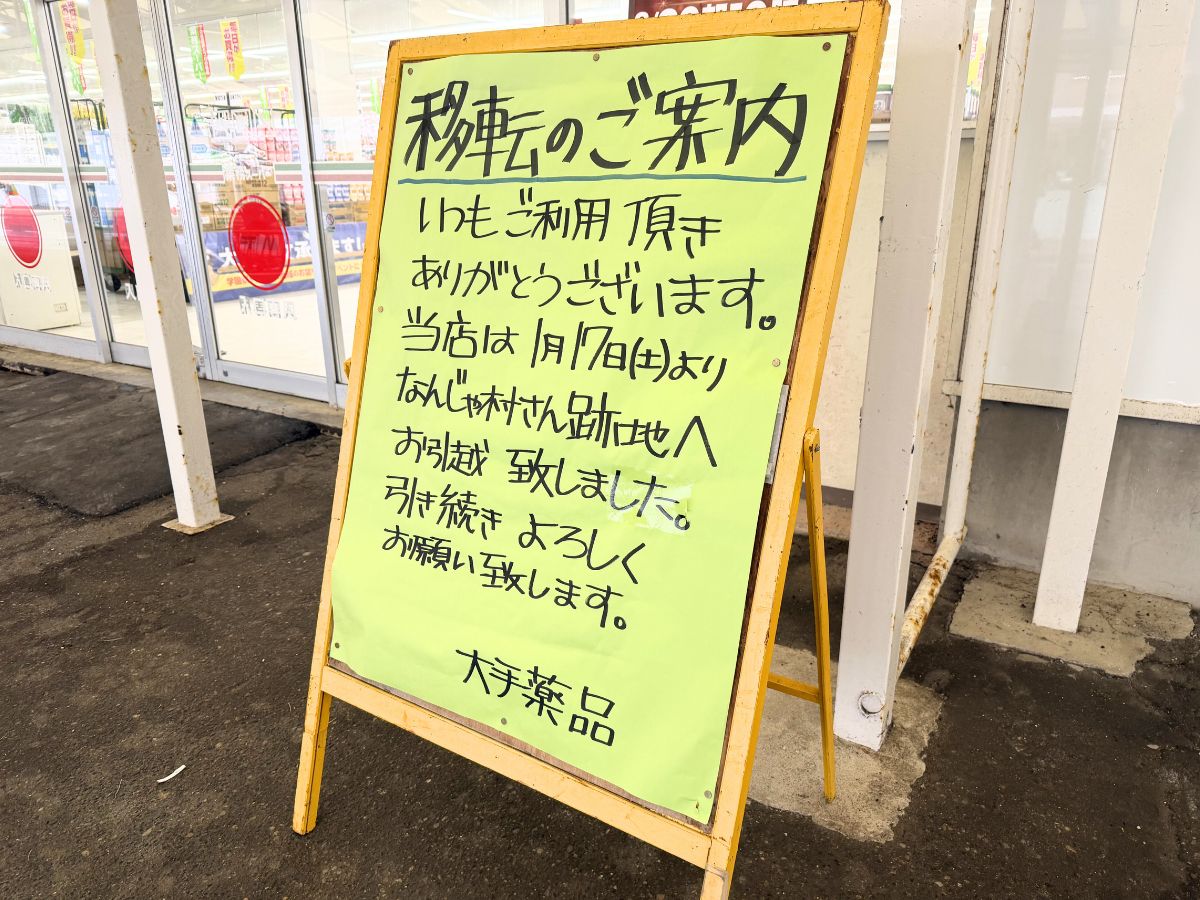 移転のご案内
いつもご利用頂き
ありがとうございます。
当店は1月17日(土)より
なんじゃ村さん跡地へ
お引越致しました。
引き続きよろしく
お願い致します。
大手薬品